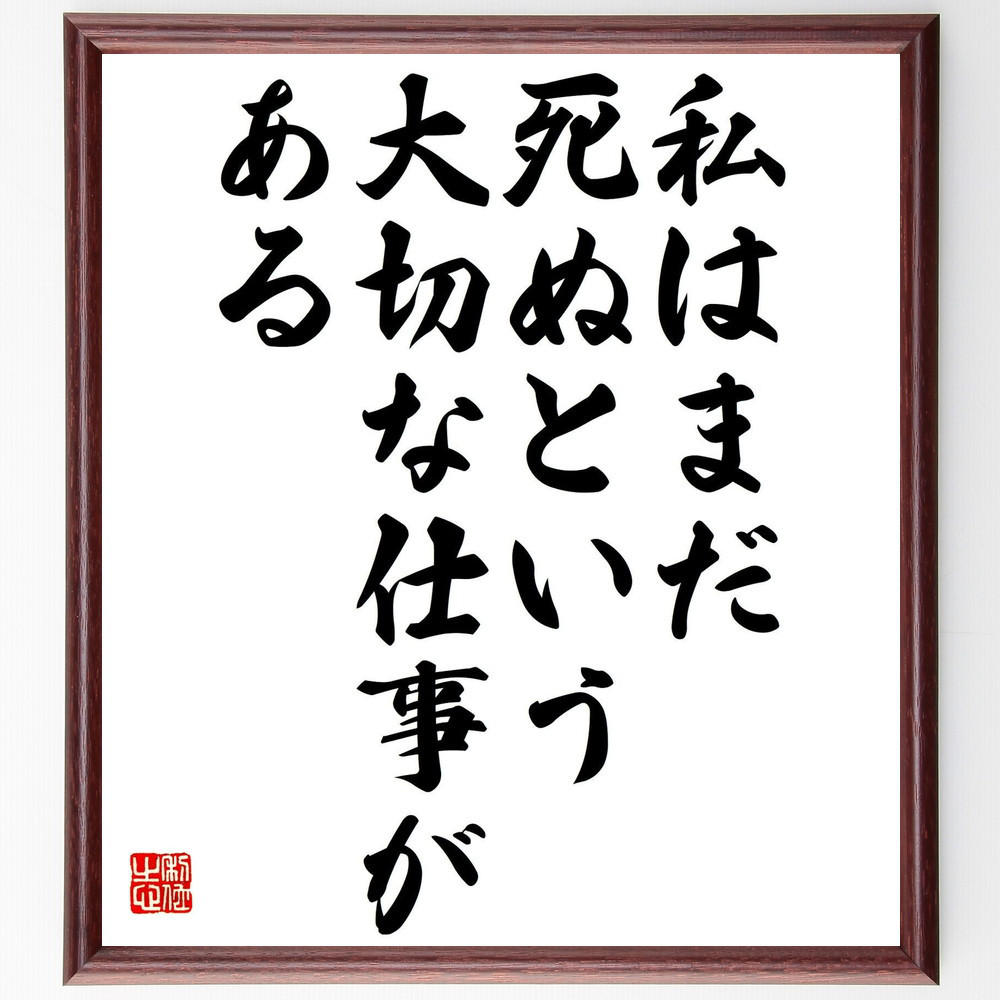 私はまだ
死ぬという
大切な仕事が
ある